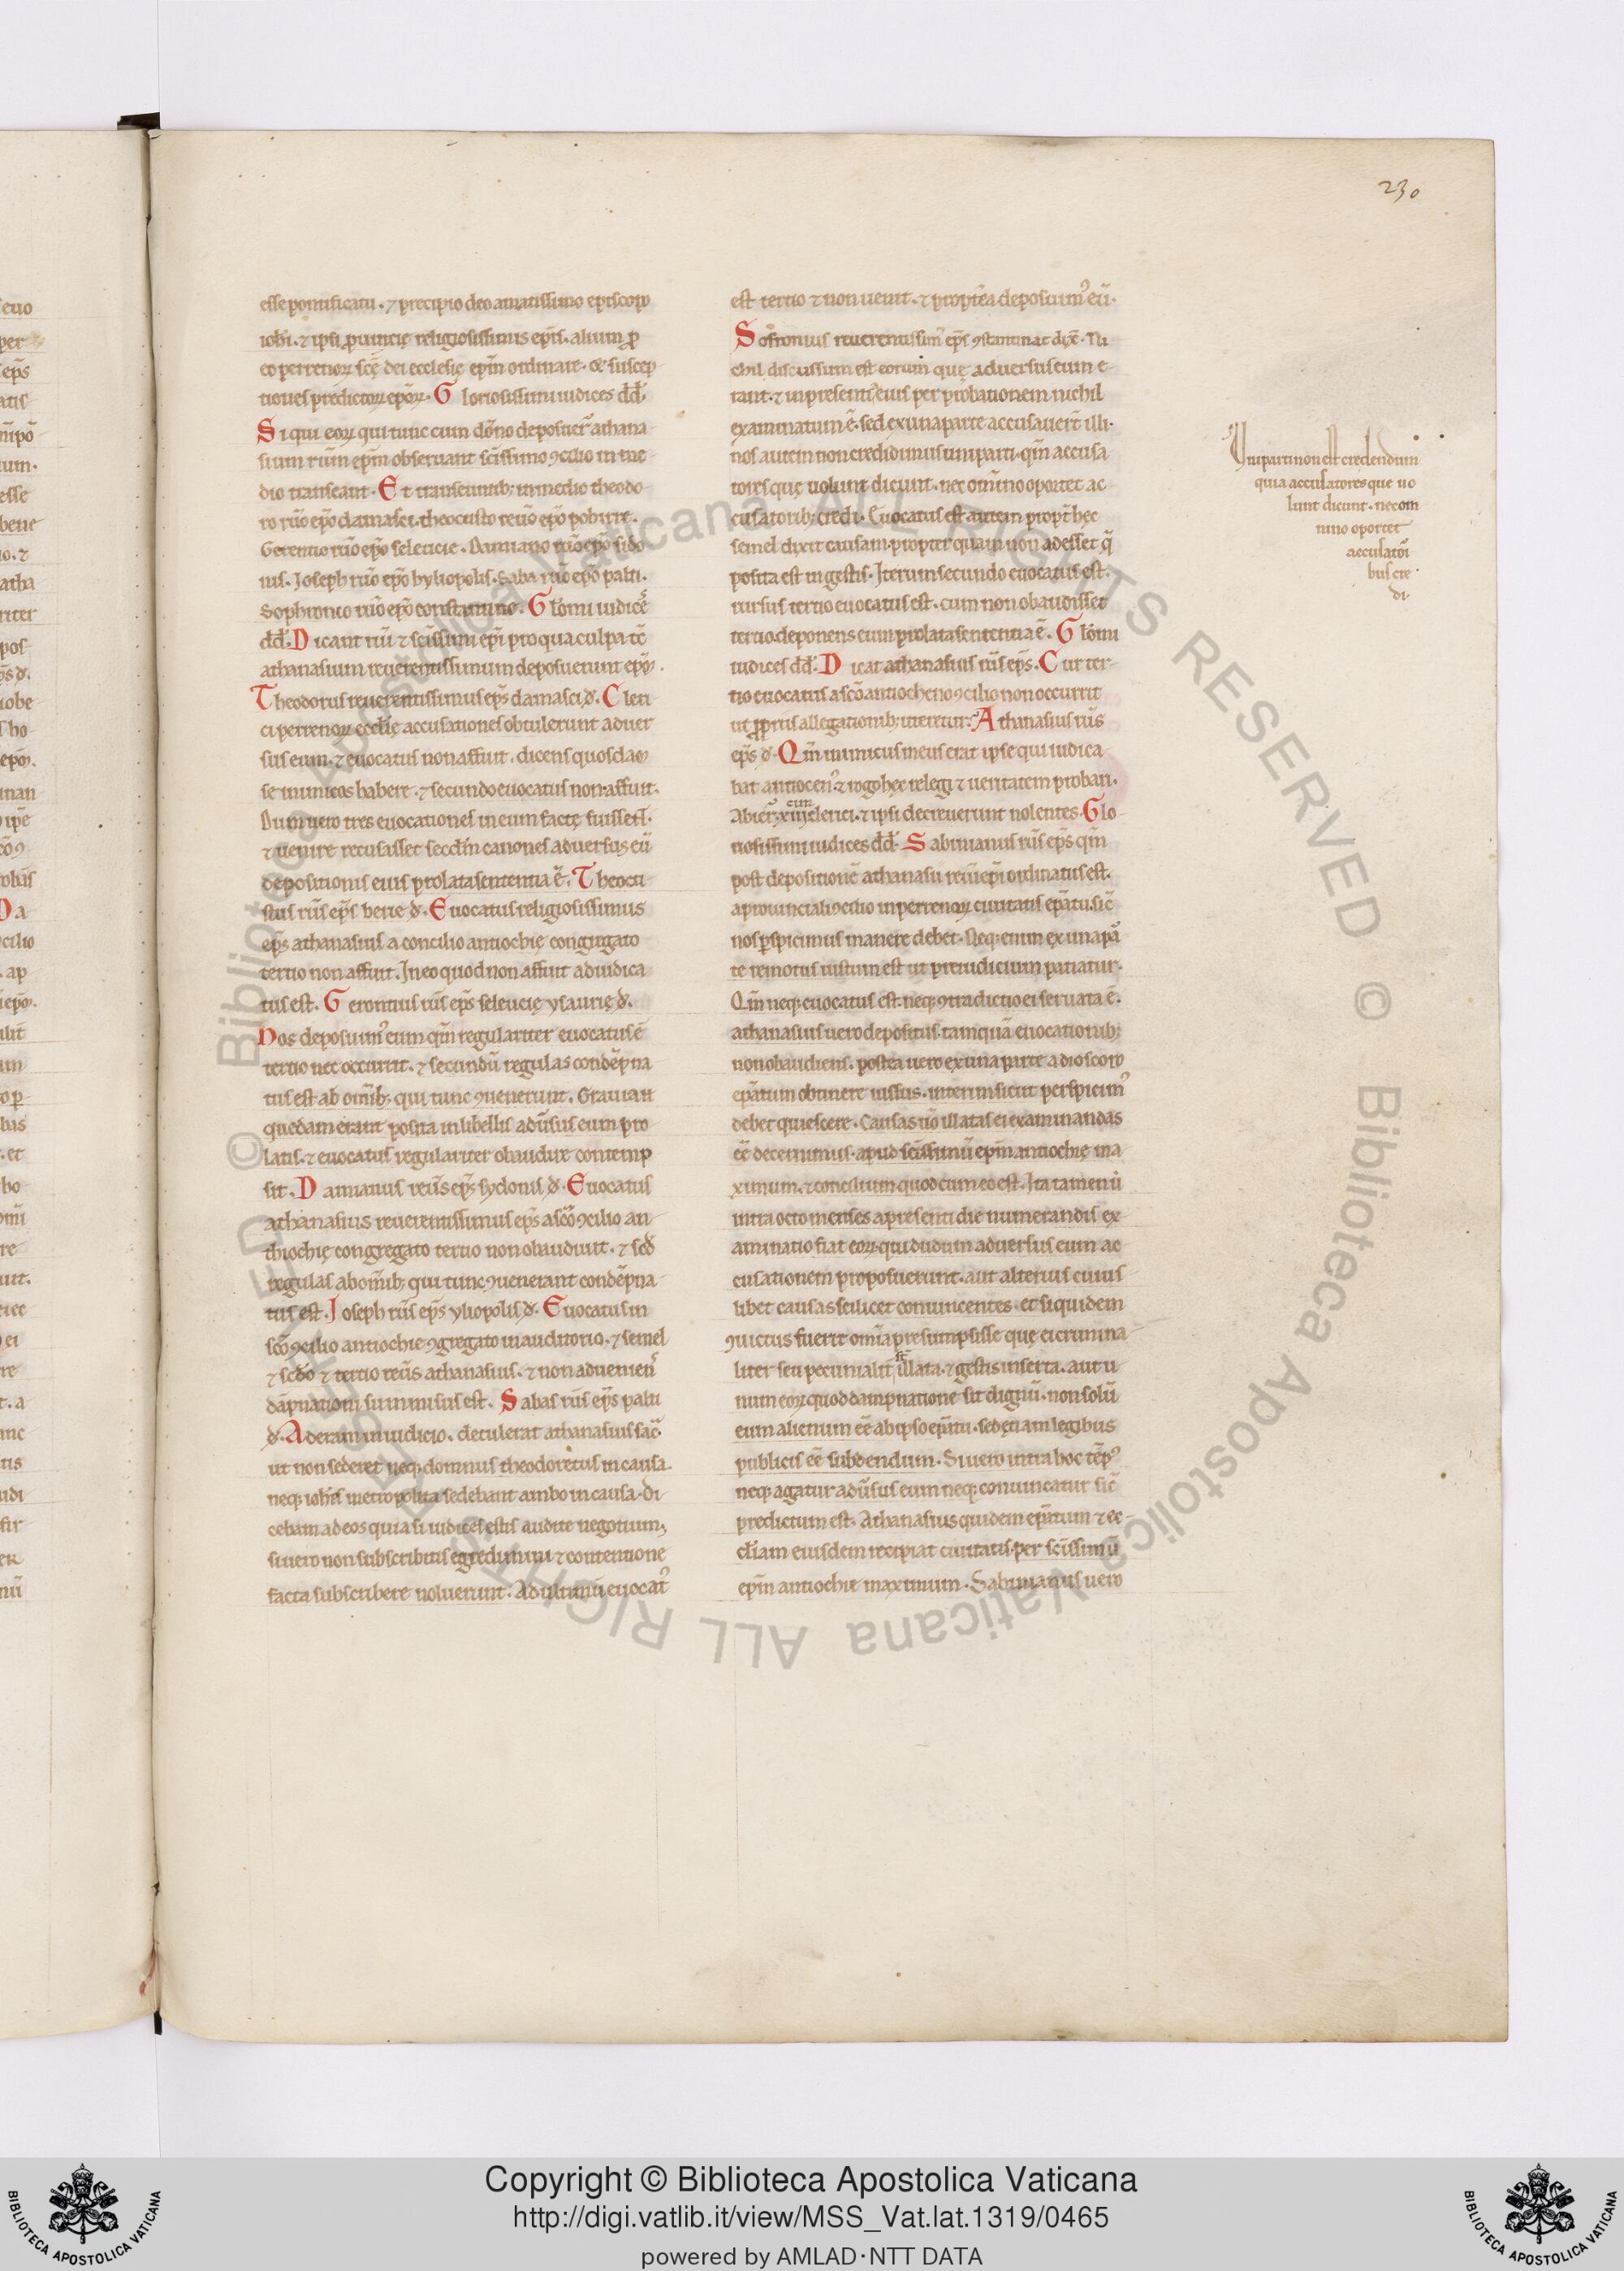 230
esse pontificatu. ⁊ precipio deo amatissimo episcopo
ioh̅i. ⁊ ipsi ꝓuincię religiosissimis ep̅is. alium ꝓ
eo perrenoꝝ sc̅ę dei ecclesię ep̅m ordinare.
tiones predictoꝝ ep̅oꝝ. Gloriosissimi iudices dd̅.
Si qui eoꝝ qui tunc cum do̅no deposuer̅ athana
sium ru̅m ep̅m obseruant sc̅issimo ꝯcilio in me
dio transeant. Et transeuntib; in medio theodo
ro ru̅o ep̅o damasci. theoctisto reu̅o ep̅o
Gerentio ru̅o ep̅o seleucie. Damiano ru̅o ep̅o sido
nis. Ioseph ru̅o ep̅o hyliopolis. Saba ru̅o ep̅o palti.
Sophronio ru̅o ep̅o constantino. Glo̅mi iudic̅e
dd̅. Dicant ru̅i ⁊ sc̅issimi ep̅i pro qua culpa tc̅
athanasium reuerentissimum deposuerunt ep̅m.
Theodorus reuerentissimus ep̅s damasci d̅. Cleri
ci perrenoꝝ eccl̅ię accusationes obtulerunt aduer
sus eum. ⁊ euocatus non affuit. dicens quosdam
se inimicos habere. ⁊ secundo euocatus non affuit.
Dum uero tres euocationes in eum factę fuissent.
⁊ uenire recusasset secd̅m canones aduersus eu̅
depositionis eius prolata sententia e̅. Theocti
stus ru̅s ep̅s berie d̅. Euocatus religiosissimus
ep̅s athanasius a concilio antiochie congregato
tertio non affuit. In eo quod non affuit adiudica
tus est. Gerontius ru̅s ep̅s seleucię ysaurię d̅.
Nos deposuim᾽ eum qm̅ regulariter euocatus e̅
tertio nec occurrit. ⁊ secundu̅ regulas conde̅pna
tus est ab om̅ib; qui tunc ꝯuenerunt. Grauia n̅
quedam erant posita in libellis adu̅sus eum pro
latis. ⁊ euocatus regulariter obaudire contemp
sit. Damianus reu̅s ep̅s sydonis d̅. Euocatus
athanasius reuerentissimus ep̅s a sc̅o ꝯcilio an
thiochię congregato tertio non obaudiuit. ⁊ scd̅
regulas ab om̅ib; qui tunc ꝯuenerant conde̅pna
tus est. Ioseph ru̅s ep̅s yliopolis d̅. Euocatus in
sc̅o ꝯcilio antiochie ꝯgregato in auditorio. ⁊ semel
⁊ scd̅o ⁊ tertio reu̅s athanasius. ⁊ non aduenien̅
da̅pnationi summisus est. Sabas ru̅s ep̅s palti
d̅. Aderam in iudicio. detulerat athanasius
ut non sederet neq; domnus theodoretus in causa.
neq; ioh̅s metropolita sedebant ambo in causa. di
cebam ad eos quia si iudices estis audite negotium,
si uero non subscribitis egredimini ⁊ contentione
facta subscribere noluerunt. Ad ultimu̅ euocat᾽
est tertio ⁊ non uenit. ⁊ propt̅ea deposuim᾽ eu̅.
Sofronius reuerentissim᾽ ep̅s ꝯstantinae dix̅. Ni
chil discussum est eorum quę aduersus eum e
rant. ⁊ in presenti̅ eius per probationem nichil
examinatum e̅. sed ex una parte accusauer̅t illi.
nos autem non credidimus uni parti. qm̅ accusa
tores quę uolunt dicunt. nec om̅ino oportet ac
cusatorib; credi. Euocatus est autem propt̅ hęc
semel dixit causam propter quam non adesset q̅
posita est in gestis. Iterum secundo euocatus est.
rursus tertio euocatus est. cum non obaudisset
tertio deponens eum prolata sententia e̅. Glo̅mi
iudices dd̅. Dicat athanasius ru̅s ep̅s. Cur ter
tio euocatus a sc̅o antiocheno ꝯcilio non occurrit
ut ꝓpriis allegationib; uteretur. Athanasius ru̅s
ep̅s d̅. Qm̅ inimicus meus erat ipse qui iudica
bat antiocen᾽ ⁊ rogo hęc relegi ⁊ ueritatem probari.
Abier̅ cum xiiii clerici. ⁊ ipsi decreuerunt nolentes. Glo
riosissimi iudices dd̅. Sabinianus ru̅s ep̅s qm̅
post depositione̅ athanasii reu̅i ep̅i ordinatus est.
a prouinciali ꝯcilio in perrenoꝝ ciuitatis ep̅atu. sic̅
nos ꝑspicimus manere debet. Neq; enim ex una pa
te remotus iustum est ut preiudicium patiatur.
Qm̅ neq; euocatus est. neq; ꝯtradictio ei seruata e̅.
athanasius uero depositus. tamqua̅ euocationib;
non obaudiens. postea uero ex una parte a dioscoro
ep̅atum obtinere iussus. interim sicut perspicim᾽
debet quiescere. Causas u̅o illatas ei examinandas
ee̅ decernimus. apud sc̅issimu̅ ep̅m antiochię ma
ximum. ⁊ concilium quod cum eo est. Ita tamen u̅
intra octo menses a presenti die numerandis ex
aminatio fiat eoꝝ. qui dudum aduersus eum ac
cusationem proposuerunt. aut alterius cuius
libet causas scilicet conuincentes. et siquidem
ꝯuictus fuerit om̅ia presumpsisse quę ei crimina
liter seu pecunialit̅ st̅ illata. ⁊ gestis inserta. aut u
num eoꝝ quod dampnatione sit dignu̅. non solu̅
eum alienum ee̅ ab ipso ep̅atu. sed etiam legibus
publicis ee̅ subdendum. Si uero intra hoc te̅p᾽
neq; agatur adu̅sus eum neq; conuincatur sic̅
predictum est. Athanasius quidem ep̅atum ⁊ ec
cl̅iam eiusdem recipiat ciuitatis. per sc̅issimu̅
ep̅m antiochie maximum. Sabinianus uero
Uni parti non est credendum
quia accusatores que uo
lunt dicunt. nec om
nino oportet
accusatori
bus cre
di.
Copyright © Biblioteca Apostolica Vaticana
http://digi.vatlib.it/view/MSS_Vat.lat.1319/0465
powered by AMLAD·NTT DATA
BIBLIOTECA APOSTOLICA VATICANA
BIBLIOTECA APOSTOLICA VATICANA
© Biblioteca Apostolica Vaticana ALL RIGHTS RESERVED © Biblioteca Apostolica Vaticana ALL RIGHTS RESERVED